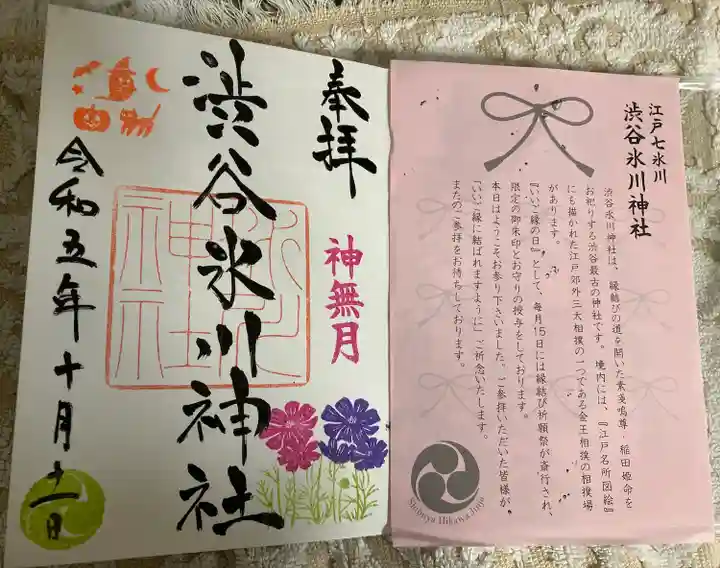 奉拝
神無月
渋谷氷川神社
氷川神社
令和五年十月十一日
江戸七氷川
渋谷氷川神社
渋谷氷川神社は、縁結びの道を開いた素戔嗚尊・稲田姫命を
お祀りする渋谷最古の神社です。境内には、『江戸名所図絵』
にも描かれた江戸郊外三大相撲の一つである金王相撲の相撲場
があります。
『いいご縁の日』として、毎月15日には縁結び祈願祭が斎行され、
限定の御朱印とお守りの授与をしております。
本日はようこそお参り下さいました。ご参拝いただいた皆様が
「いいご縁に結ばれますように」ご祈念いたします。
またのご参拝をお待ちしております。
Shibuya Hikawa Jinja